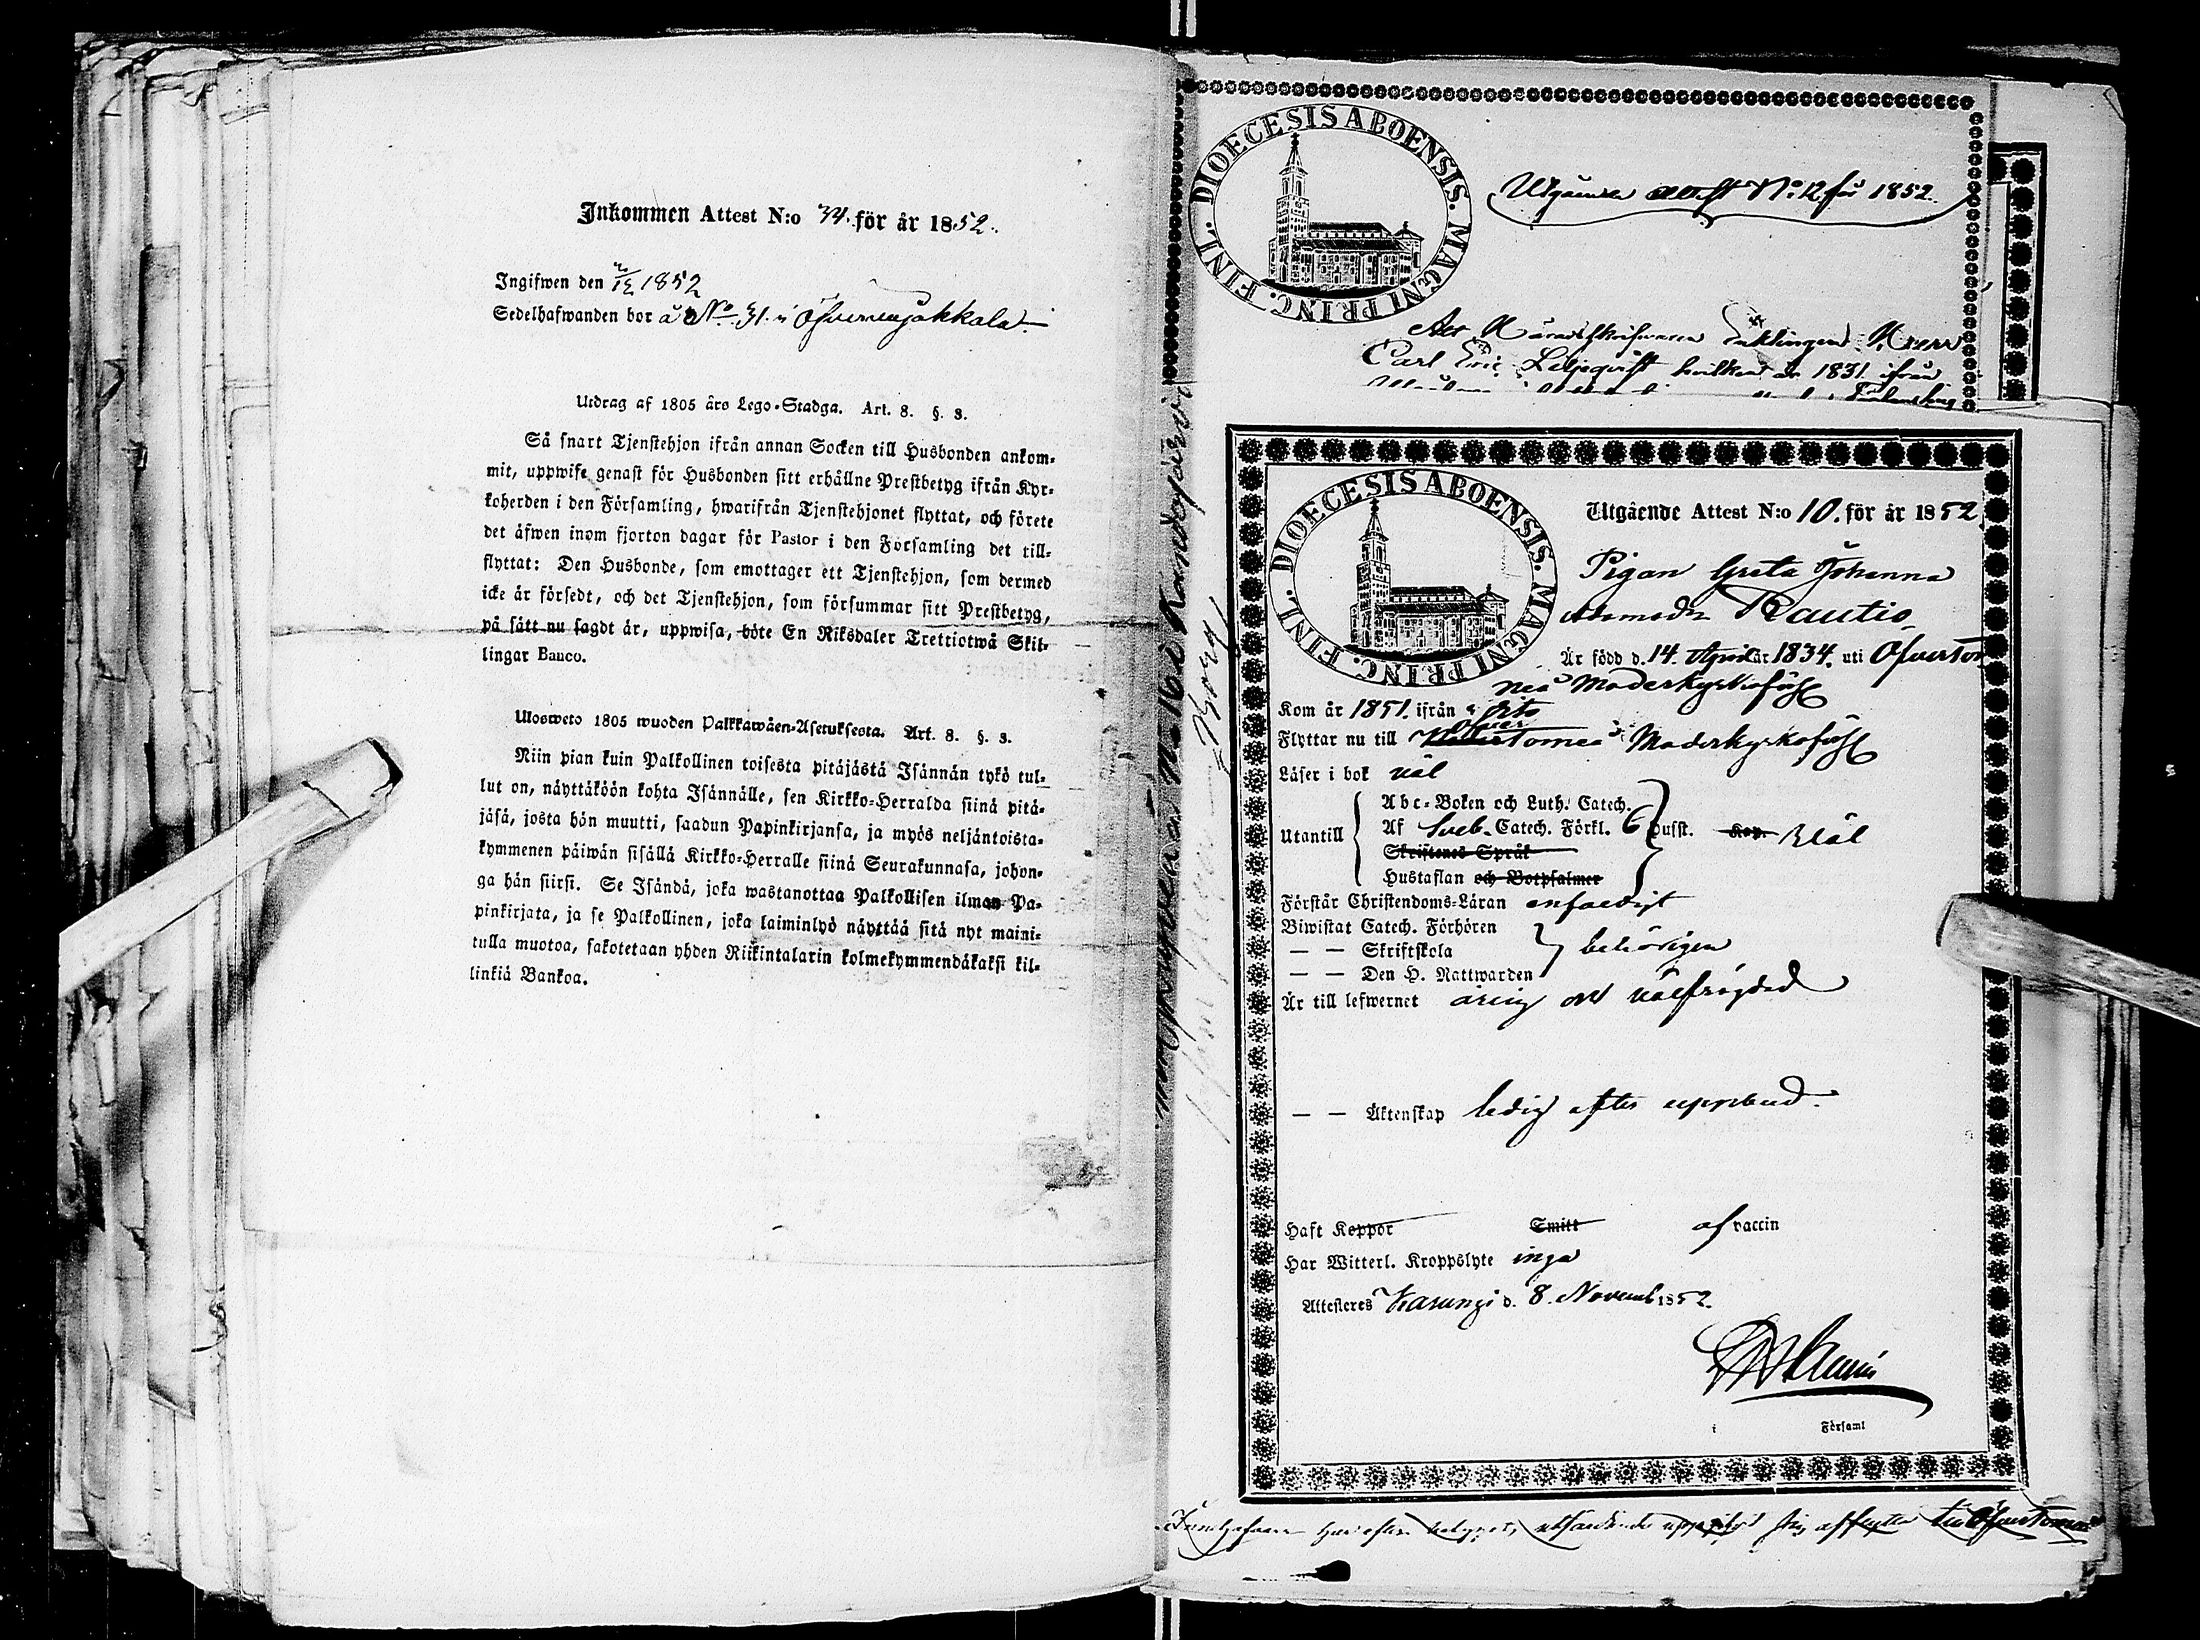 Inkommen Attest N:o 34. för år 1852.
Ingifwen den 1852
Sedelhafwanden bor å No 31. i Öfvervojakkala
Utdrag af 1805 års Lego-Stadga. Art. 8. §. 3.
Så snart Tjenstehjon ifrån annan Socken till Husbonden ankom-
mit, uppwise genast för Husbonden sitt erhållne Prestbetyg ifrån Kyr-
koherden i den Församling, hwarifrån Tjenstehjonet flyttat, och förete
det äfwen inom fjorton dagar för Pastor i den Församling det till-
flyttat: Den Husbonde, som emottager ett Tjenstehjon, som dermed
icke är försedt, och det Tjenstehjon, som försummar sitt Prestbetyg,
på sätt nu sagdt är, uppwisa, böte En Riksdaler Trettiotwå Skil-
lingar Banco.
Ulosweto 1805 wuoden Palkkawäen-Asetuksesta. Art. 8. §. 3.
Niin pian kuin Palkollinen toisesta pitäjästä Isännän tykö tul-
lut on, näyttäköön kohta Isännälle, sen Kirkko-Herralda siinä pitä-
jäsä, josta hän muutti, saadun Papinkirjansa, ja myös neljäntoista-
kymmenen päiwän sisällä Kirkko-Herralle siinä Seurakunnasa, johon-
ga hän siirsi. Se Isändä, joka wastanottaa Palkollisen ilman Pa-
pinkirjata, ja se Palkollinen, joka laiminlyö näyttää sitä nyt maini-
tulla muotoa, sakotetaan yhden Riikintalarin kolmekymmendäkaksi kil-
linkiä Bankoa.
DIOECESIS ABOENSIS. MAGNI PRINC. FINL.
Utgående attest No 12 för 1852.
Häradsskrifvaren Herr
Carl Eric Liljeqvist hvilken år 1831 ifrån
DIOECESIS ABOENSIS. MAGNI PRINC. FINL.
Utgående Attest N:o 10. för år 1852.
Pigan Greta Johanna
Adamsdr Rautio,
Är född d. 14. April år 1834. uti Öfvertor
neå Moderkyrkoförs
Kom år 1851. ifrån dito
Flyttar nu till Öfver Torneå Moderkyrkoförs
Läser i bok väl
Abc-Boken och Luth. Catech.
Utantill Af Sveb. Catech. Förkl. 6 Hufst. Kap. Väl
Skriftenes Språk
Hustaflan och Botpsalmer
Förstår Christendoms-Läran enfaldigt
Biwistat Catech. Förhören
— — Skriftskola behörigen
— — Den H. Nattwarden
Är till lefwernet ärlig och välfrägdad
— — Äktenskap ledig efter uppsbud.
Haft Koppor Smitt af vaccin
Har Witterl. Kroppslyte inga
Attesteres Karungi d. 8. Novemb 1852.
i Församl